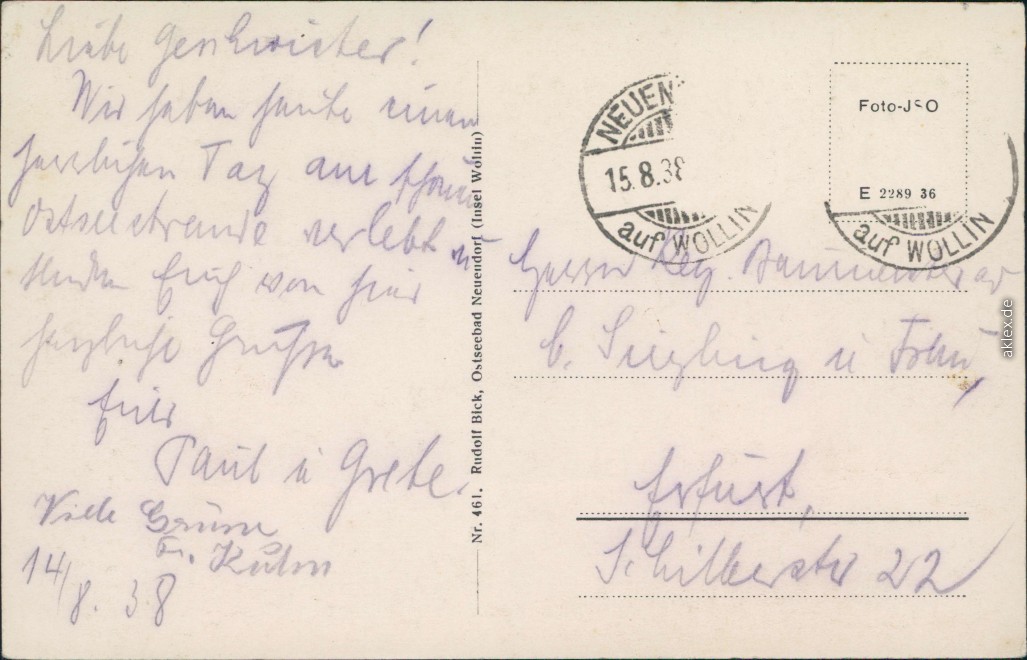 Liebe Geschwister!
Wir haben heute einen
herrlichen Tag am schönen
Ostseestrande verlebt u
senden Euch von hier
herzliche Grüße
Eure
Paul u Grete.
Viele Grüsse
Fr. Kuhn
14/8. 38
Nr. 461. Rudolf Bick, Ostseebad Neuendorf (Insel Wollin)
NEUEN
15.8.38
auf WOLLIN
Foto-JSO
E 2289 36
auf WOLLIN
Herrn Reg. Baumeister aD
u Frau,
Erfurt,
Schillerstr 22
aklex.de